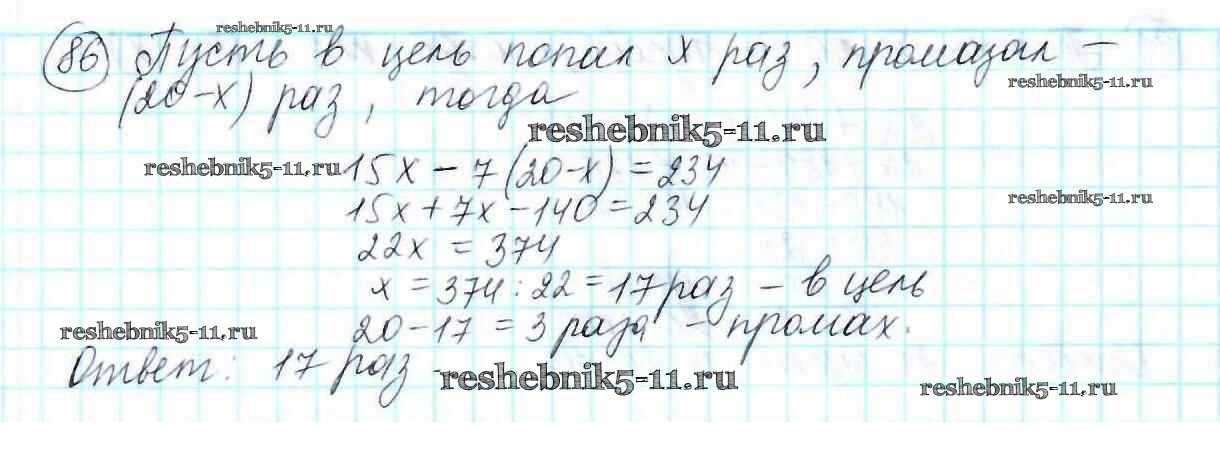 reshebnik5-11.ru
86 Пусть в цель попал x раз, промазал –
reshebnik5-11.ru
(20-x) раз, тогда
reshebnik5-11.ru
reshebnik5-11.ru 15x – 7(20-x) = 234
reshebnik5-11.ru
15x + 7x – 140 = 234
22x = 374
x = 374 : 22 = 17 раз – в цель
reshebnik5-11.ru
20 – 17 = 3 раза – промах.
Ответ: 17 раз
reshebnik5-11.ru
reshebnik5-11.ru